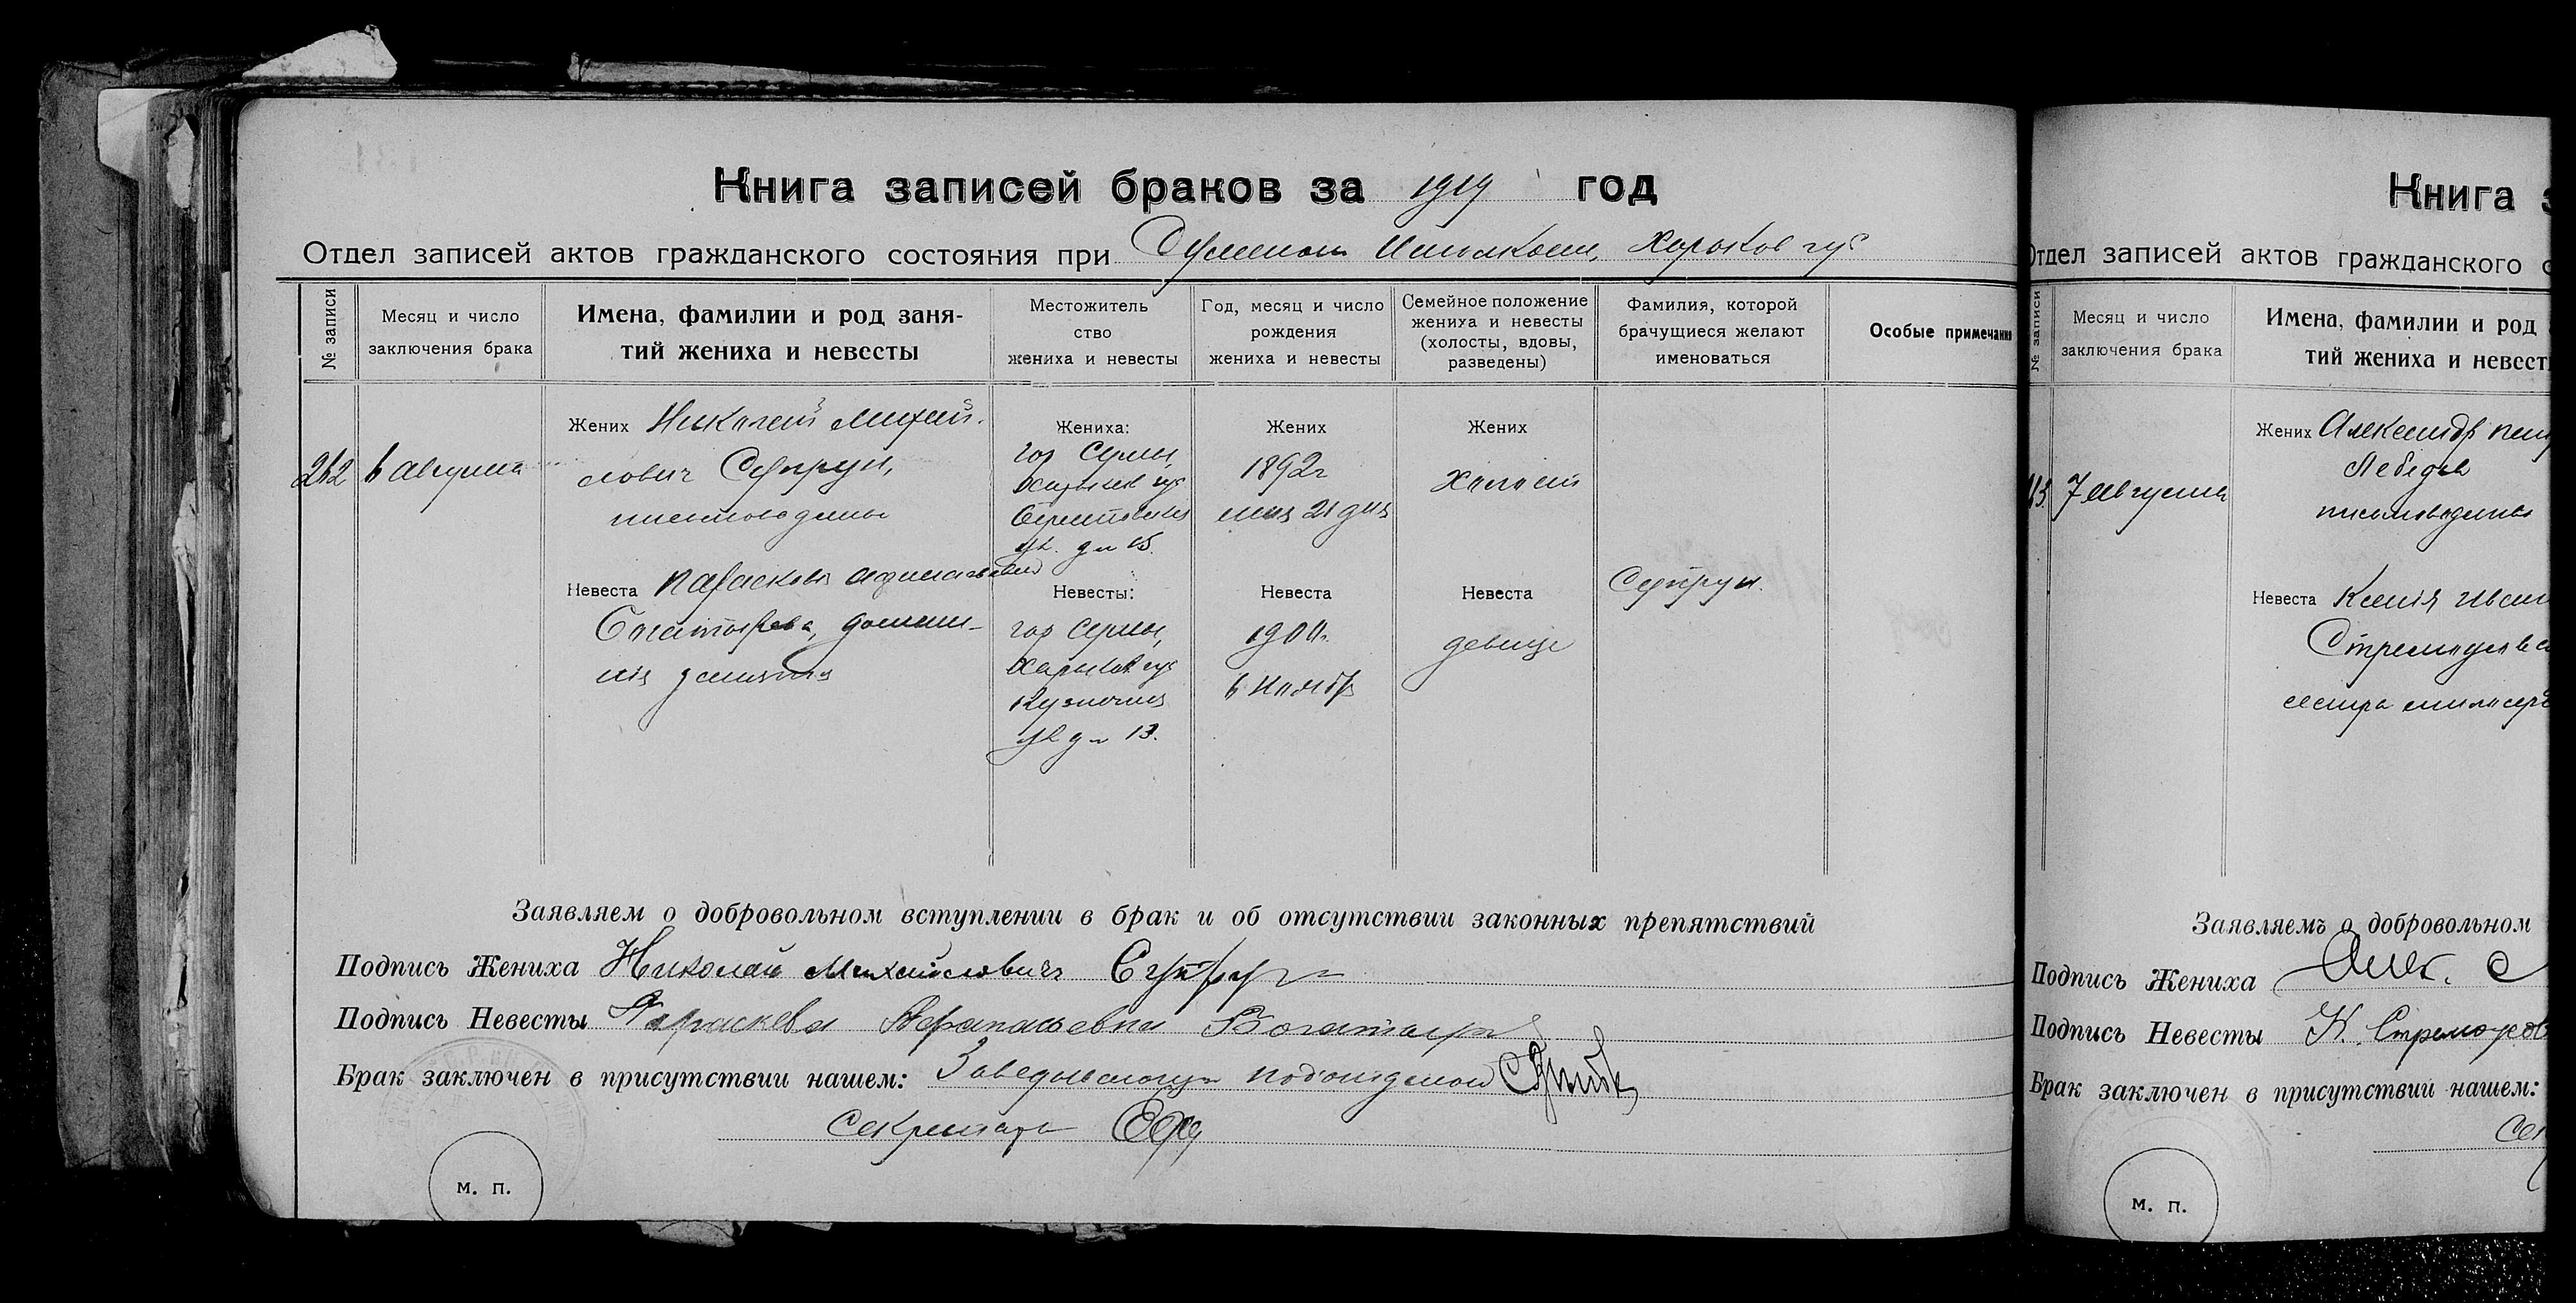 Книга записей браков за 1919 год
Отдел записей актов гражданского состояния при Сумском Исполкоме, Харьков губ
№ записи
Месяц и число
заключения брака
Имена, фамилии и род заня-
тий жениха и невесты
Местожитель
ство
жениха и невесты
Год, месяц и число
рождения
жениха и невесты
Семейное положение
жениха и невесты
(холосты, вдовы,
разведены)
Фамилия, которой
брачущиеся желают
именоваться
Особые примечания
262
6 августа
Жених Николай Михай-
лович Супрун,
письмоводитель
Невеста Параскева Афанасьевна
Богатырева, домаш-
нія занятия
Жениха:
гор Сумы,
Харьков губ
ул. д № 15.
Невесты:
гор Сумы,
Харьков губ
Кузнечная
ул д № 13.
Жених
1892г
мая 21 дня
Невеста
1900г.
6 Ноябр
Жених
Холост
Невеста
девица
Супрун.
Заявляем о добровольном вступлении в брак и об отсутствии законных препятствий
Подпись Жениха Николай Михайловичъ Супрун
Подпись Невесты Параскева Афанасьевна Богатыр
Брак заключен в присутствии нашем: Заведывающий подотделом
Секретарь
м. п.
Книга з
Отдел записей актов гражданского с
№ записи
Месяц и число
заключения брака
Имена, фамилии и род
тий жениха и невест
7 августа
Жених Александр
Лебедев
письмоводитель
Невеста Ксенія Иван
сестра милосерд
Заявляемъ о добровольном
Подпись Жениха
Подпись Невесты К. Стремоухов
Брак заключен в присутствии нашем:
Сек
м. п.